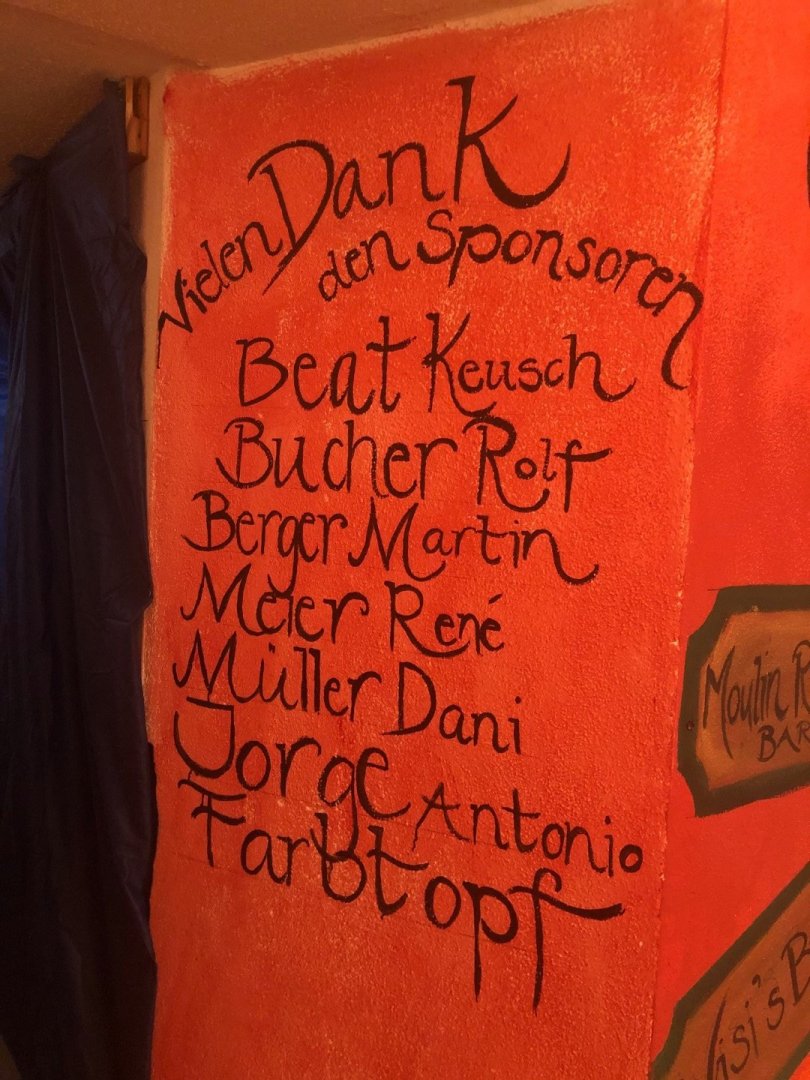 Vielen Dank
den Sponsoren
Beat Keusch
Bucher Rolf
Berger Martin
Meier René
Müller Dani
Jorge Antonio
Farbtopf
Moulin R
BAR
isi's B